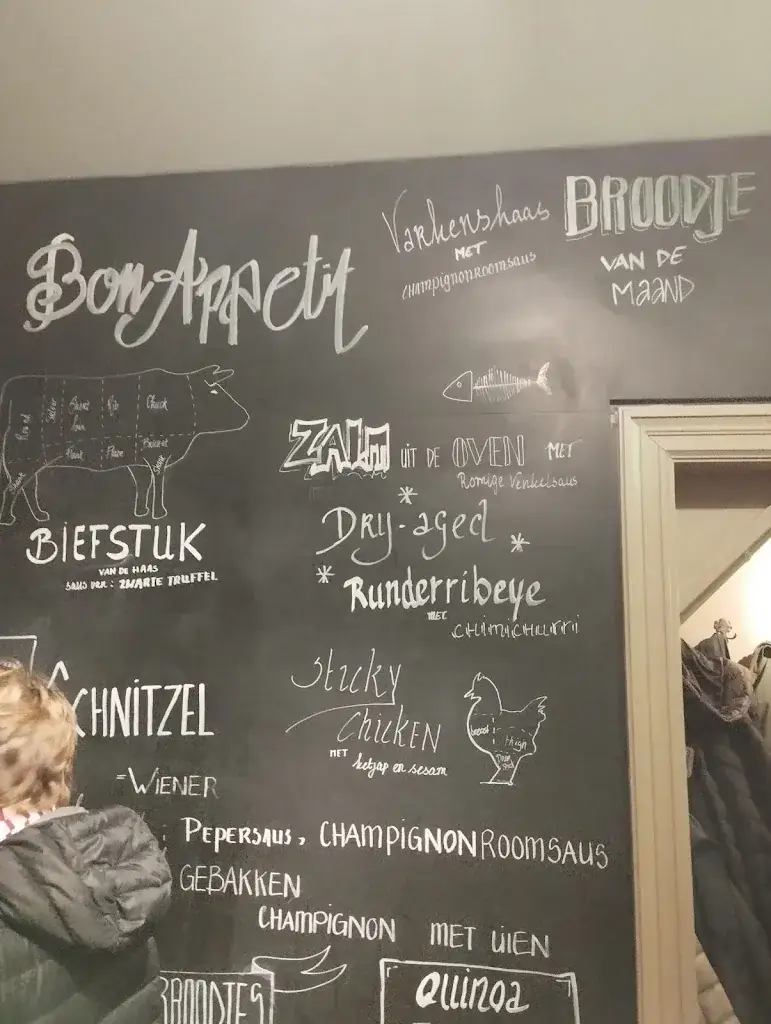 Bon Appetit
Varkenshaas
MET
CHAMPIGNONROOMSAUS
BROODJE
VAN DE
MAAND
Round
Short
Loin
Rib
Chuck
Flank
Plate
Brisket
Shank
Shank
BIEFSTUK
VAN DE HAAS
ZWARTE TRUFFEL
ZALM UIT DE OVEN MET
Romige Venkelsaus
Dry-aged
Runderribeye
MET
CHIMICHURRI
Sticky
Chicken
MET ketjap en sesam
breast
thigh
SCHNITZEL
=WIENER
: PEPERSAUS, CHAMPIGNONROOMSAUS
GEBAKKEN
CHAMPIGNON MET UIEN
BROODJES
Quinoa